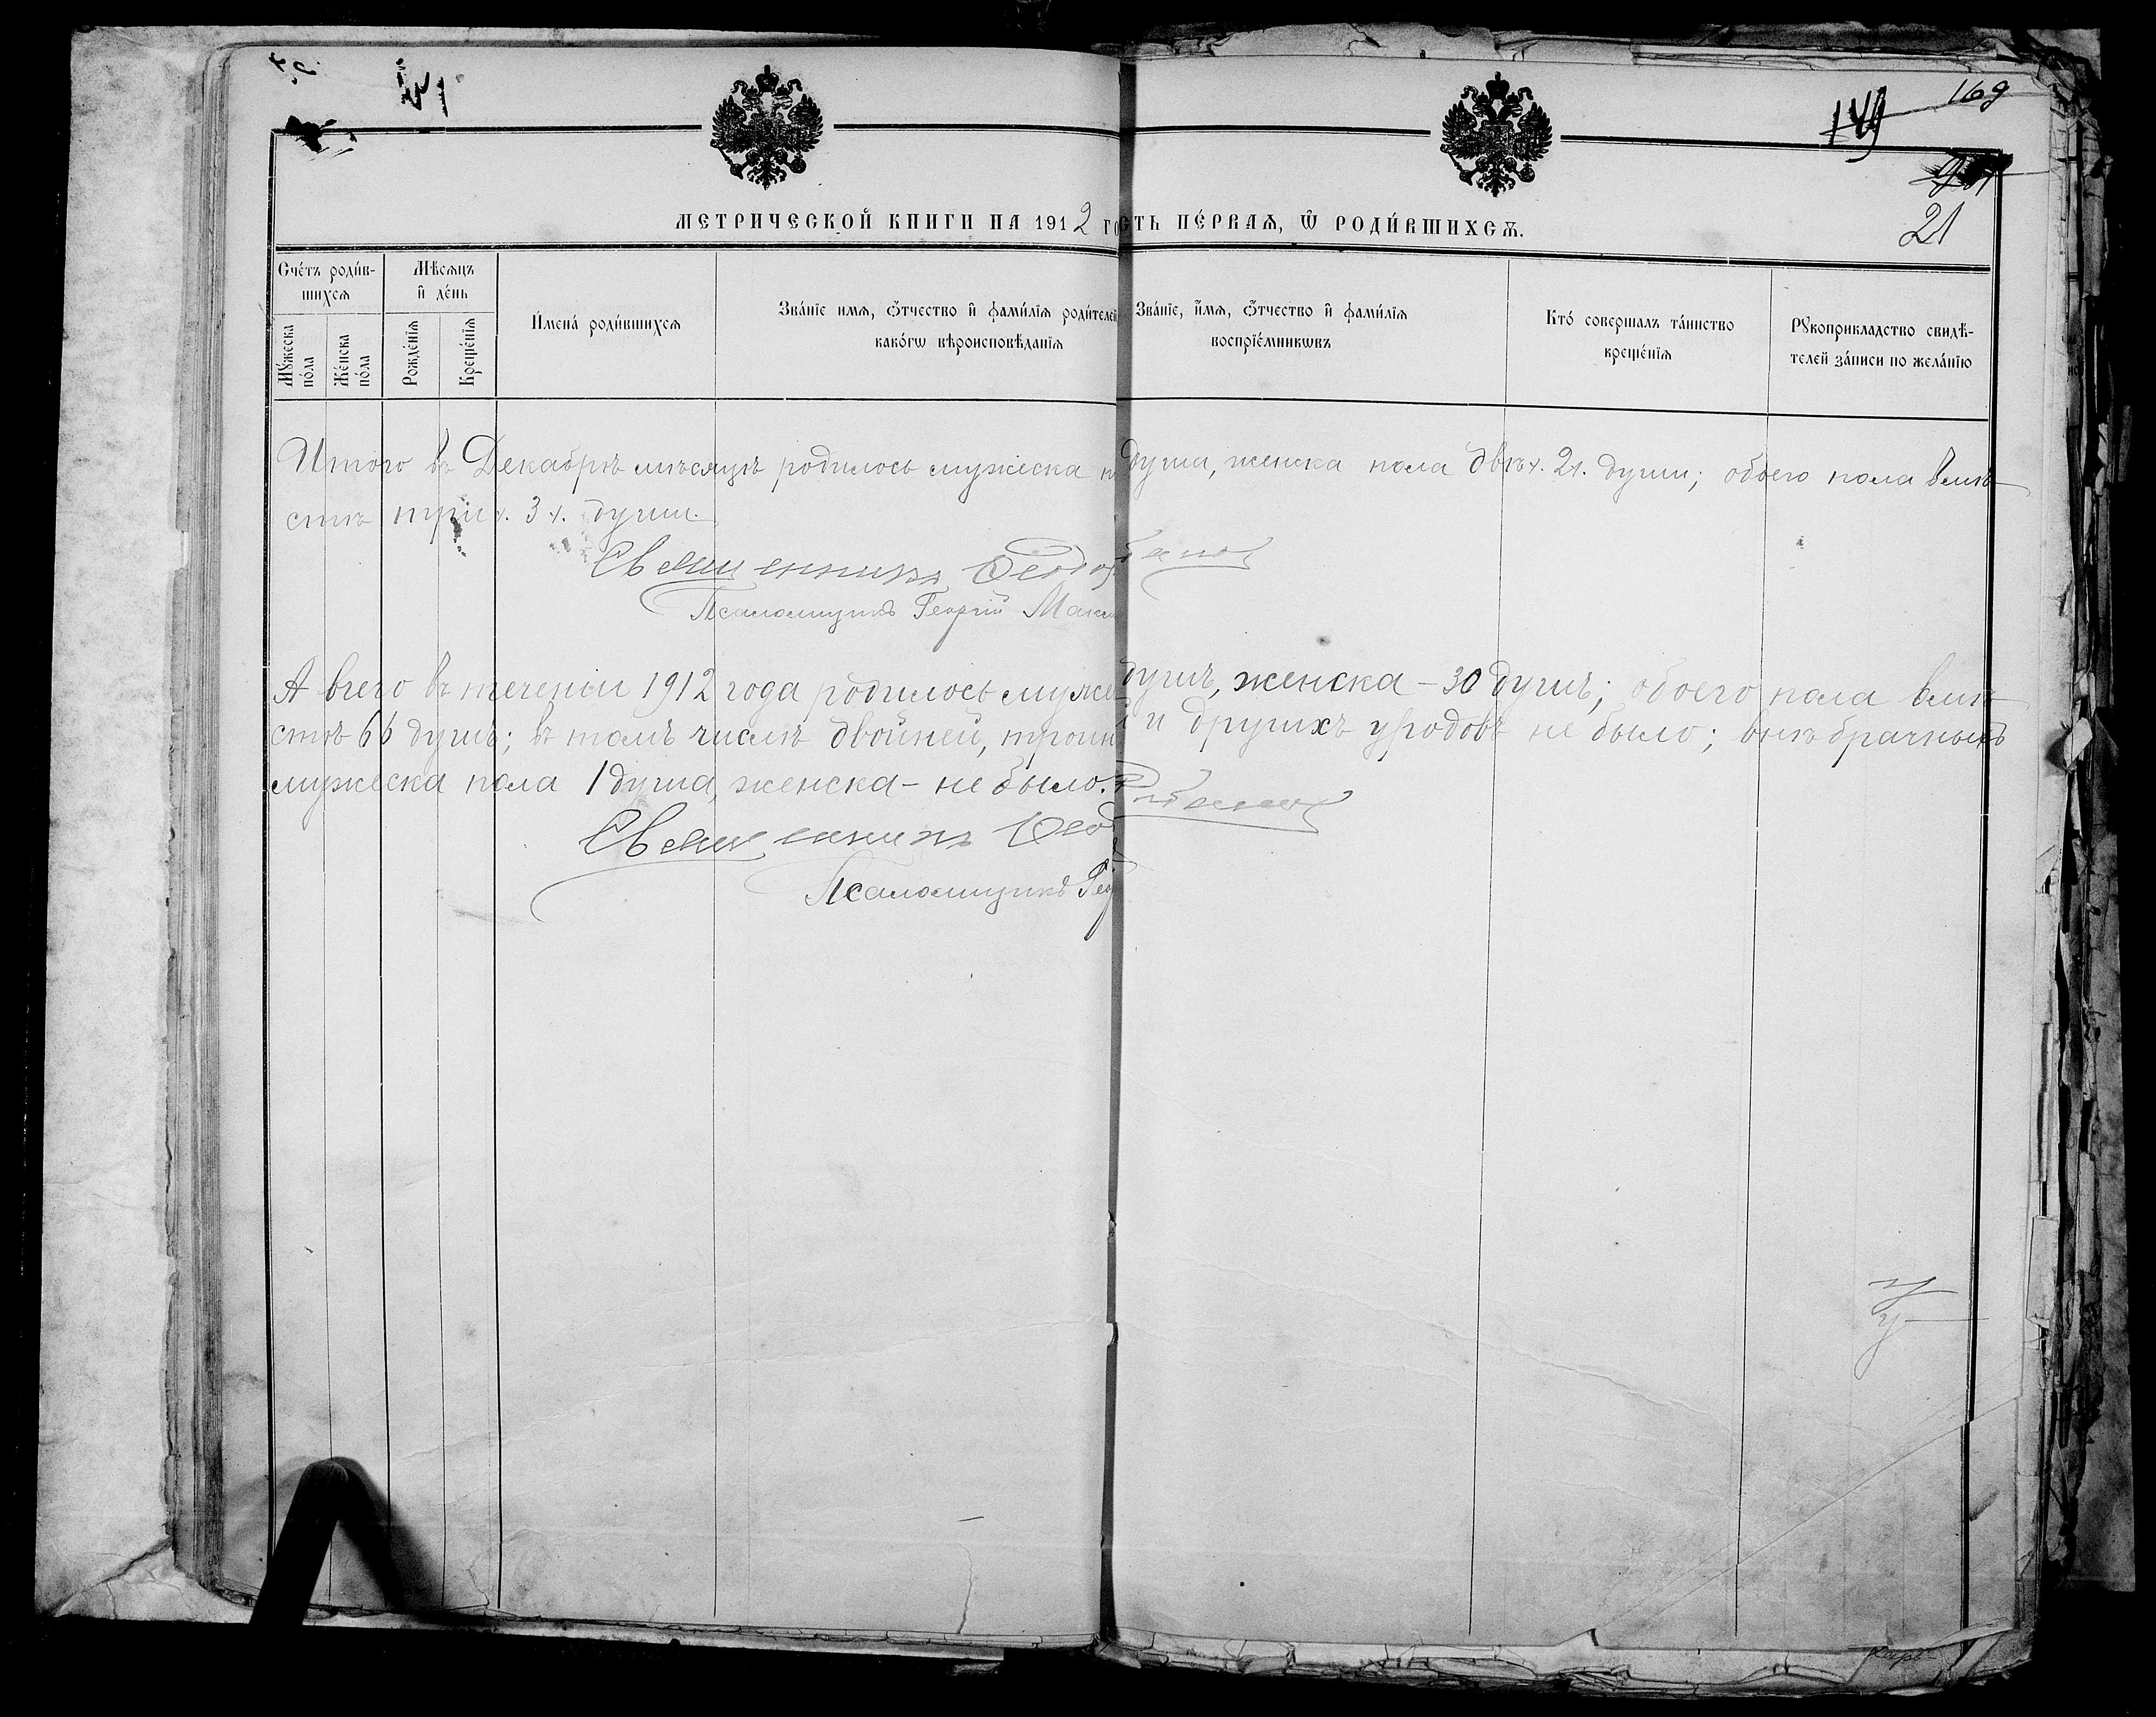 169
149
21
МЕТРИЧЕСКОЙ КНИГИ НА 1912 ГО СТЬ ПЕ́РВАѦ, Ѿ РОДИ́ВШИХСѦ.
Сче́тъ роди́в-
шихсѧ
Мꙋ́жеска по́ла
Же́нска по́ла
Мѣ́сѧцъ
и҆ де́нь
Рожде́нїѧ
Креще́нїѧ
И҆мена́ роди́вшихсѧ
Зва́нїе имѧ, ѻ҆́тчество и҆ фами́лїѧ роди́телей
како́гѡ вѣроисповѣ́данїѧ
Зва́нїе, и҆́мѧ, ѻ҆́тчество и҆ фами́лїѧ
воспрїе́мникѡвъ
Кто́ соверша́лъ та́инство
креще́нїѧ
Рꙋкоприкладство свидѣ́-
телей за́писи по жела́нїю
Итого въ Декабрѣ мѣсяцѣ родилось мужеска п душа, женска пола двѣ. 2. души; обоего пола вмѣ-
стѣ три. 3. души.
Священникъ Ѳеодор
Псаломщикъ Георгій Макси
А всего въ теченіи 1912 года родилось муже душъ, женска - 30 душъ; обоего пола вмѣ-
стѣ 66 душъ; въ томъ числѣ двойней, тройн й и другихъ уродовъ не было; внѣбрачныхъ
мужеска пола 1 душа, женска - не было.
Священникъ Ѳеод
Псаломщикъ Гео